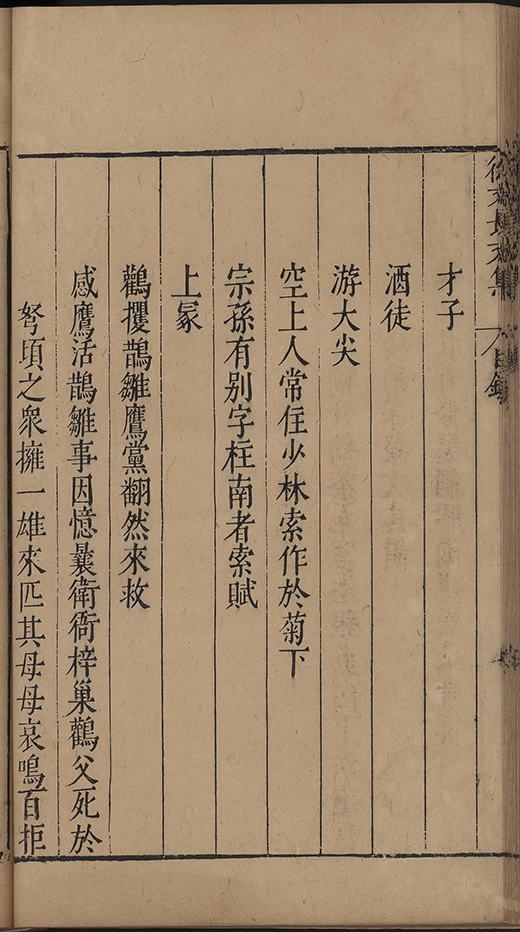 徐文長文集 目錄
才子
酒徒
游大尖
空上人常住少林索作於菊下
宗孫有别字柱南者索賦
上冢
鸛攫鵲雛鷹黨翻然來救
感鷹活鵲雛事因憶曩衛衙梓巢鸛父死於
弩頃之衆擁一雄來匹其母母哀鳴百拒